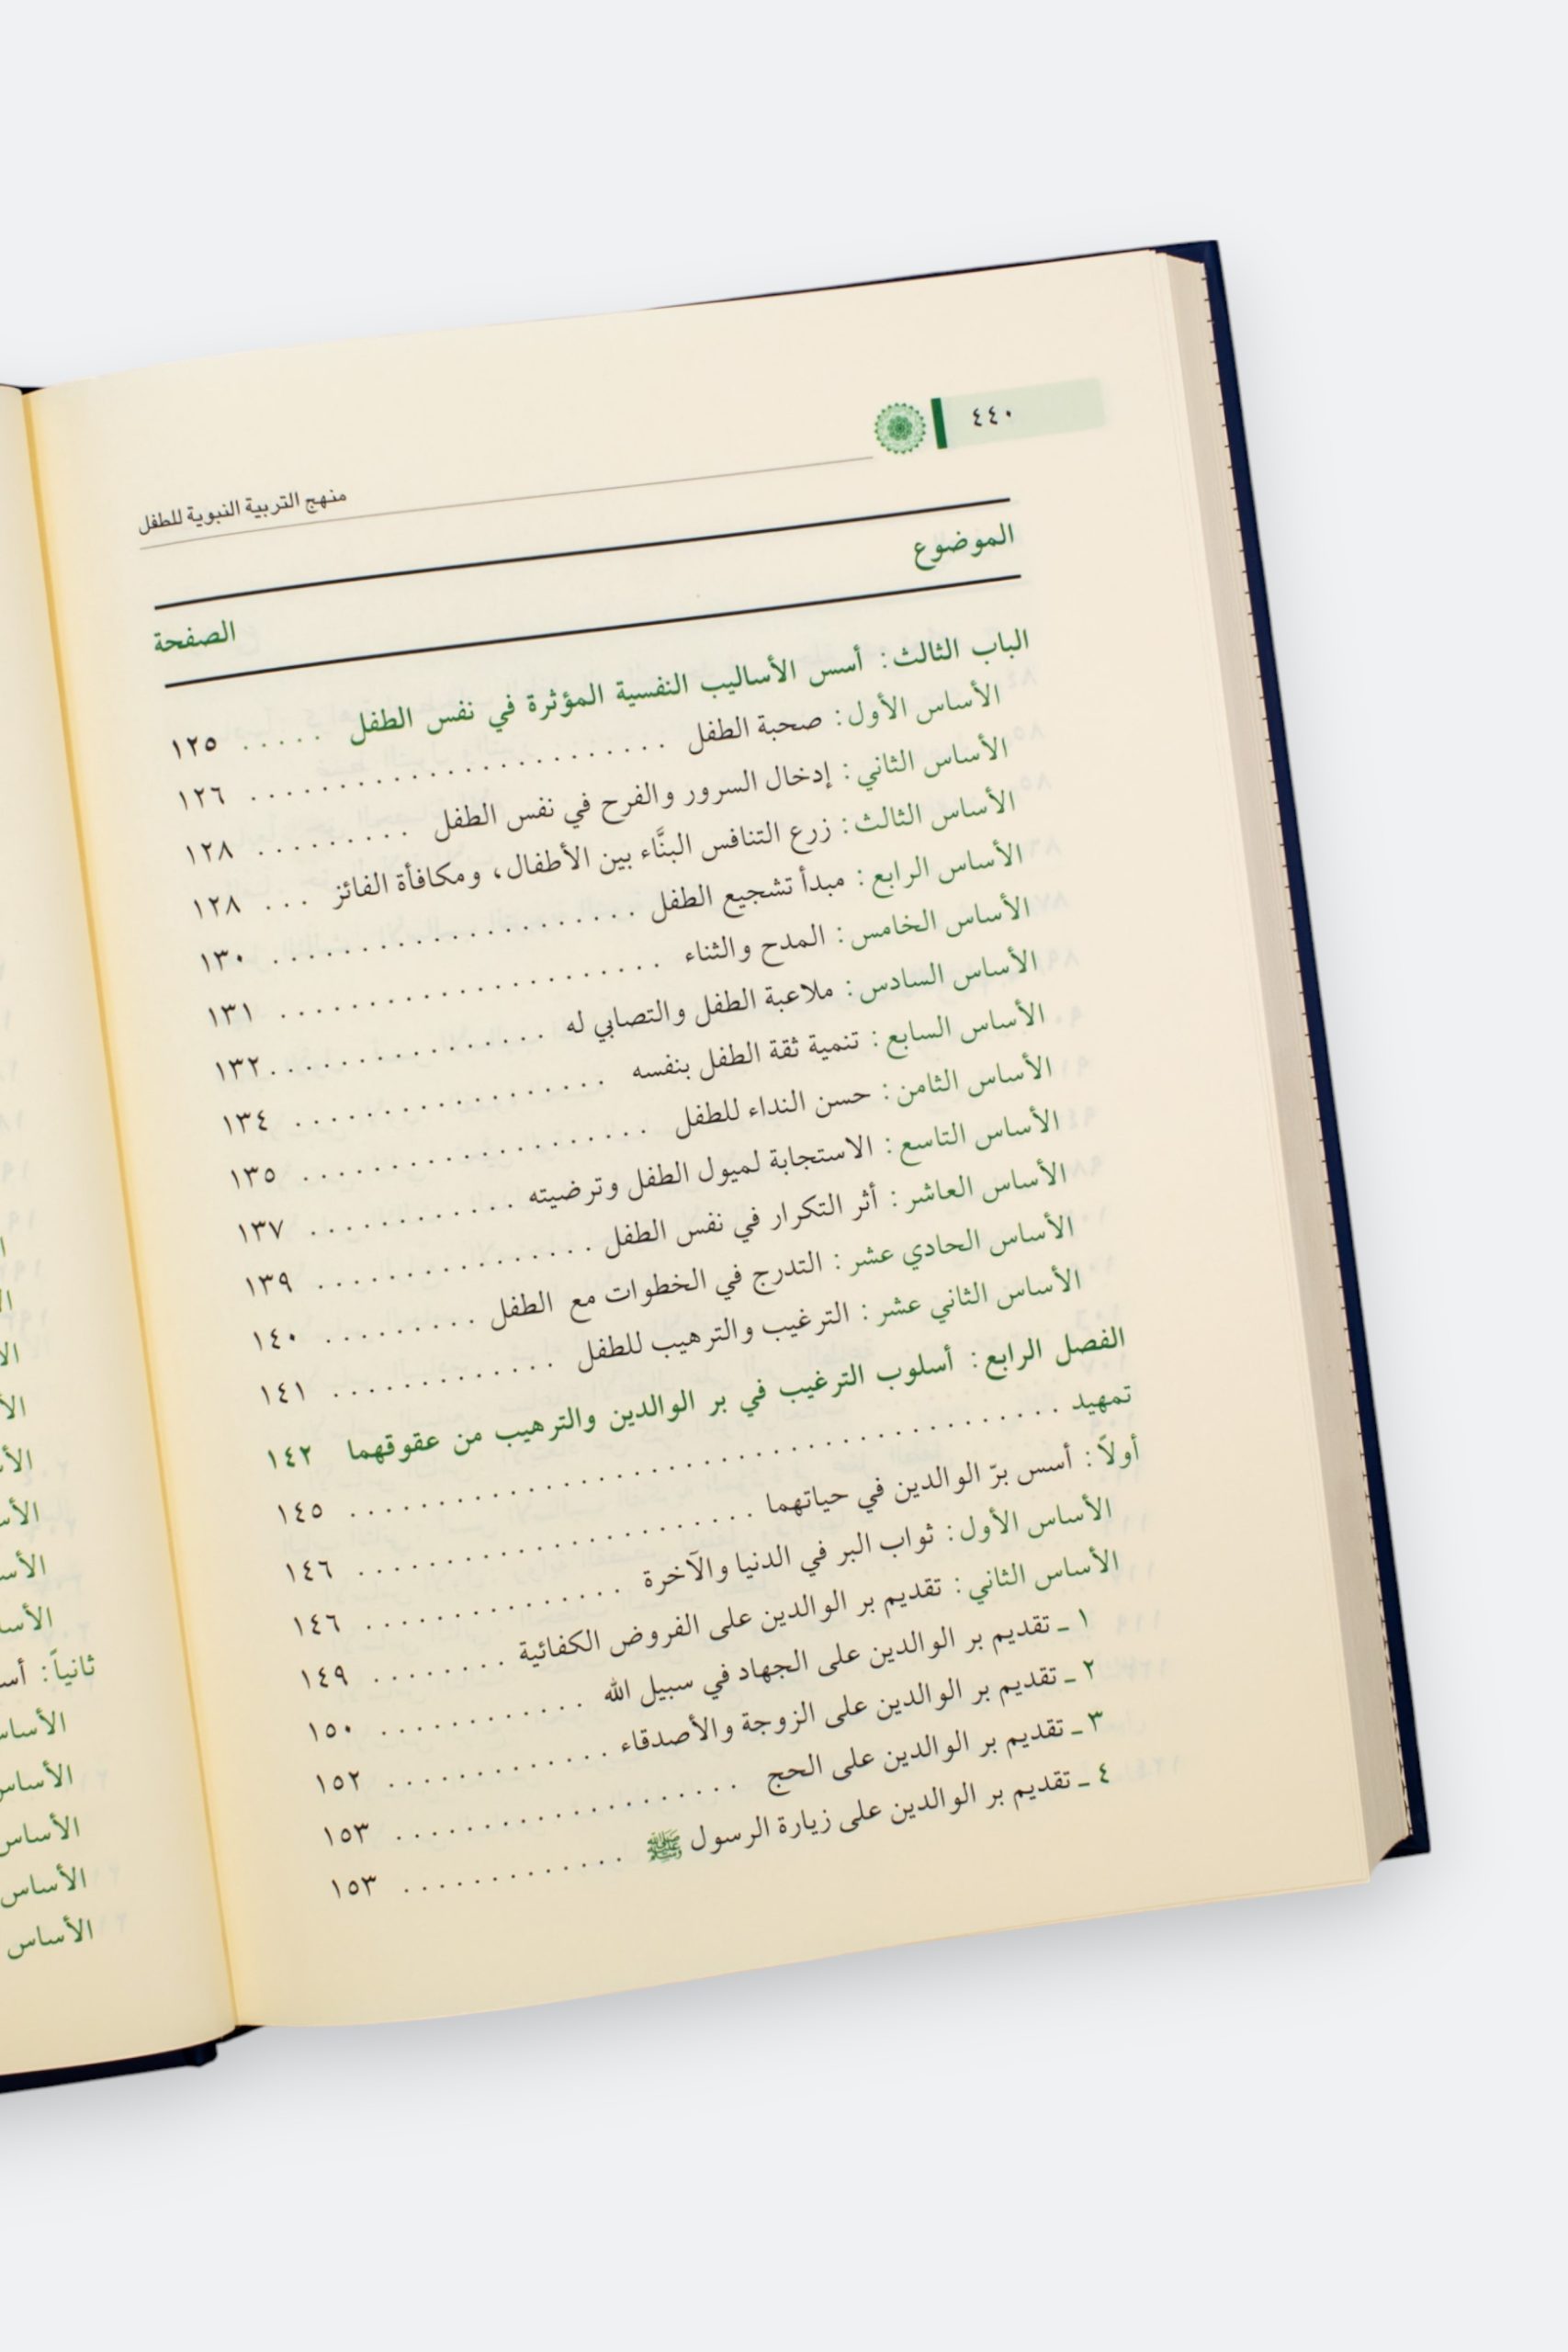 ٤٤٠
منهج التربية النبوية للطفل
الموضوع
الصفحة
الباب الثالث: أسس الأساليب النفسية المؤثرة في نفس الطفل ..... ١٢٥
الأساس الأول: صحبة الطفل ........................ ١٢٦
الأساس الثاني: إدخال السرور والفرح في نفس الطفل ......... ١٢٨
الأساس الثالث: زرع التنافس البنَّاء بين الأطفال، ومكافأة الفائز ... ١٢٨
الأساس الرابع: مبدأ تشجيع الطفل ..................... ١٣٠
الأساس الخامس: المدح والثناء ...................... ١٣١
الأساس السادس: ملاعبة الطفل والتصابي له ................ ١٣٢
الأساس السابع: تنمية ثقة الطفل بنفسه .................. ١٣٤
الأساس الثامن: حسن النداء للطفل .................... ١٣٥
الأساس التاسع: الاستجابة لميول الطفل وترضيته ............ ١٣٧
الأساس العاشر: أثر التكرار في نفس الطفل ................ ١٣٩
الأساس الحادي عشر: التدرج في الخطوات مع الطفل ......... ١٤٠
الأساس الثاني عشر: الترغيب والترهيب للطفل ............. ١٤١
الفصل الرابع: أسلوب الترغيب في بر الوالدين والترهيب من عقوقهما ١٤٢
تمهيد ........................................ ١٤٥
أولاً: أسس برّ الوالدين في حياتهما ....................... ١٤٦
الأساس الأول: ثواب البر في الدنيا والآخرة ............... ١٤٦
الأساس الثاني: تقديم بر الوالدين على الفروض الكفائية ........ ١٤٩
١ ـ تقديم بر الوالدين على الجهاد في سبيل الله ............ ١٥٠
٢ ـ تقديم بر الوالدين على الزوجة والأصدقاء ............. ١٥٢
٣ ـ تقديم بر الوالدين على الحج .................... ١٥٣
٤ ـ تقديم بر الوالدين على زيارة الرسول ﷺ ............. ١٥٣
ثانياً:
الأساس
الأساس
الأساس
الأساس
الأساس